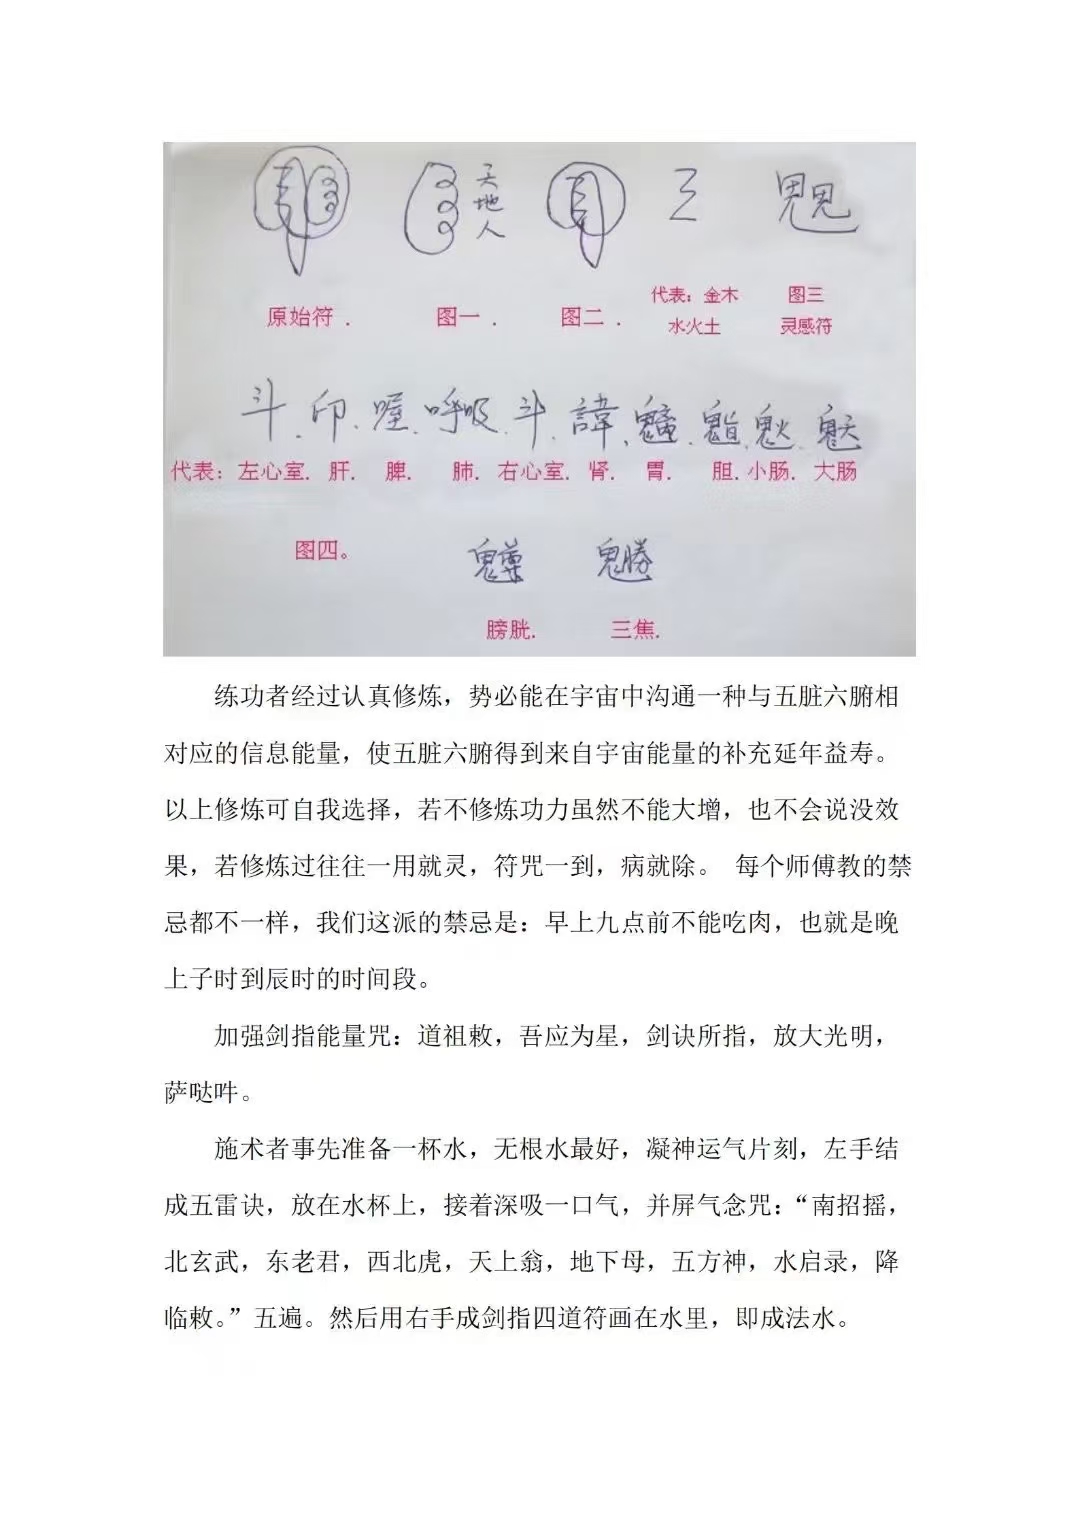 天
地
人
原始符．
图一．
图二．
代表：金木
水火土
图三
灵感符
斗．印．喔．呼吸．斗．諱．
代表：左心室．肝．脾．肺．右心室．肾．胃．胆．小肠．大肠
图四。
膀胱．三焦．
练功者经过认真修炼，势必能在宇宙中沟通一种与五脏六腑相
对应的信息能量，使五脏六腑得到来自宇宙能量的补充延年益寿。
以上修炼可自我选择，若不修炼功力虽然不能大增，也不会说没效
果，若修炼过往往一用就灵，符咒一到，病就除。 每个师傅教的禁
忌都不一样，我们这派的禁忌是：早上九点前不能吃肉，也就是晚
上子时到辰时的时间段。
加强剑指能量咒：道祖敕，吾应为星，剑诀所指，放大光明，
萨哒吽。
施术者事先准备一杯水，无根水最好，凝神运气片刻，左手结
成五雷诀，放在水杯上，接着深吸一口气，并屏气念咒：“南招摇，
北玄武，东老君，西北虎，天上翁，地下母，五方神，水启录，降
临敕。”五遍。然后用右手成剑指四道符画在水里，即成法水。